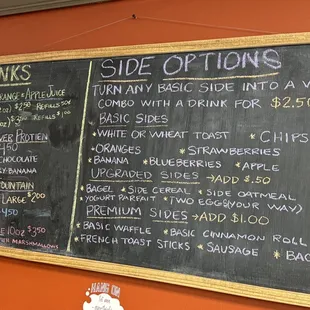 NKS
RANGE • APPLE JUICE
2OZ) $2.50 REFILLS 50¢
OZ) $3.00 REFILLS $1.00
VER PROTIEN
450
CHOCOLATE
Y-BANANA
OUNTAIN
LARGE $2.00
450
E 10OZ $3.50
MARSHMALLOWS
SIDE OPTIONS
TURN ANY BASIC SIDE INTO A V
COMBO WITH A DRINK FOR $2.50
BASIC SIDES
*WHITE OR WHEAT TOAST *CHIPS
*ORANGES *STRAWBERRIES
*BANANA *BLUEBERRIES *APPLE
UPGRADED SIDES →ADD $.50
*BAGEL *SIDE CEREAL *SIDE OATMEAL
*YOGURT PARFAIT *TWO EGGS (YOUR WAY)
PREMIUM SIDES →ADD $1.00
*BASIC WAFFLE *BASIC CINNAMON ROLL
*FRENCH TOAST STICKS *SAUSAGE *BAC
HANG ON